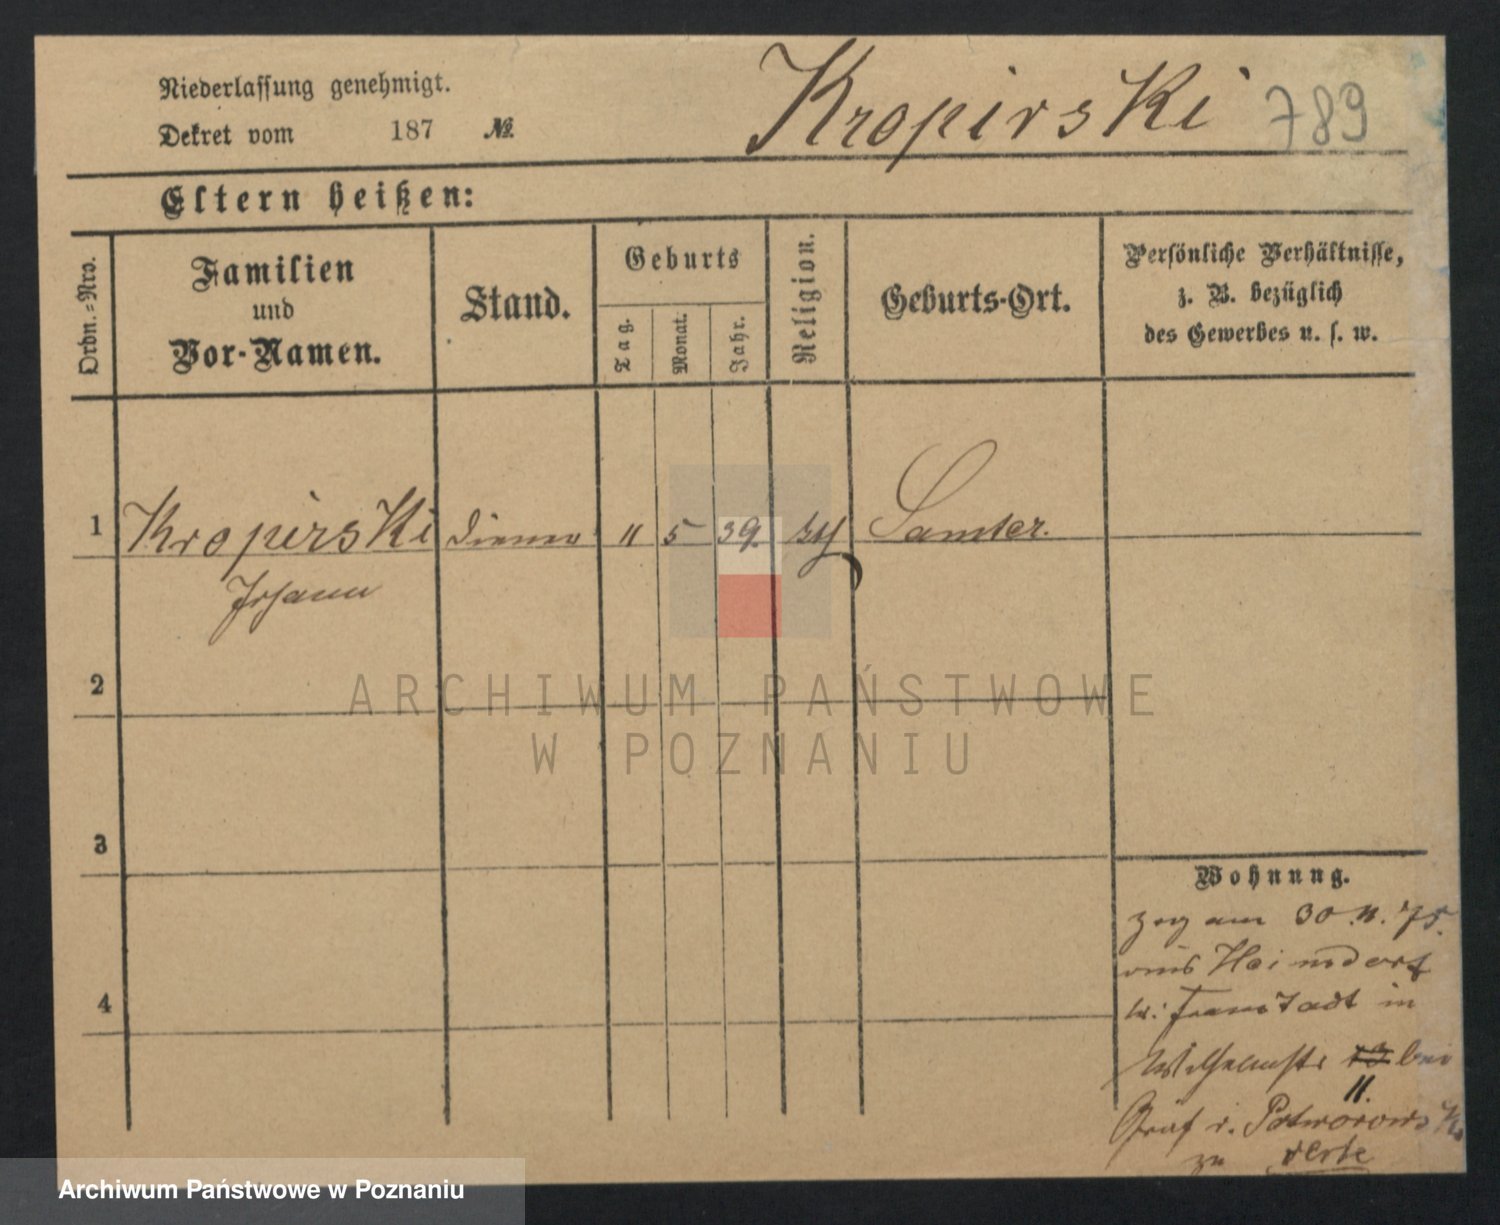 Niederlassung genehmigt.
Dekret vom 187 №
Kropirski 789
Eltern heißen:
Ordn.-Nro.
Familien
und
Vor-Namen.
Stand.
Geburts
Tag.
Monat.
Jahr.
Religion.
Geburts-Ort.
Persönliche Verhältnisse,
z. B. bezüglich
des Gewerbes u. s. w.
1 Kropirski Diener 11 5 39. Samter.
Johann
2
3
4
Wohnung.
zog am 30.11.75.
aus Heinsdorf
in
Wilhelmstr 13 bei
11.
Graf v. Potworowski
zu
ARCHIWUM PAŃSTWOWE
W POZNANIU
Archiwum Państwowe w Poznaniu